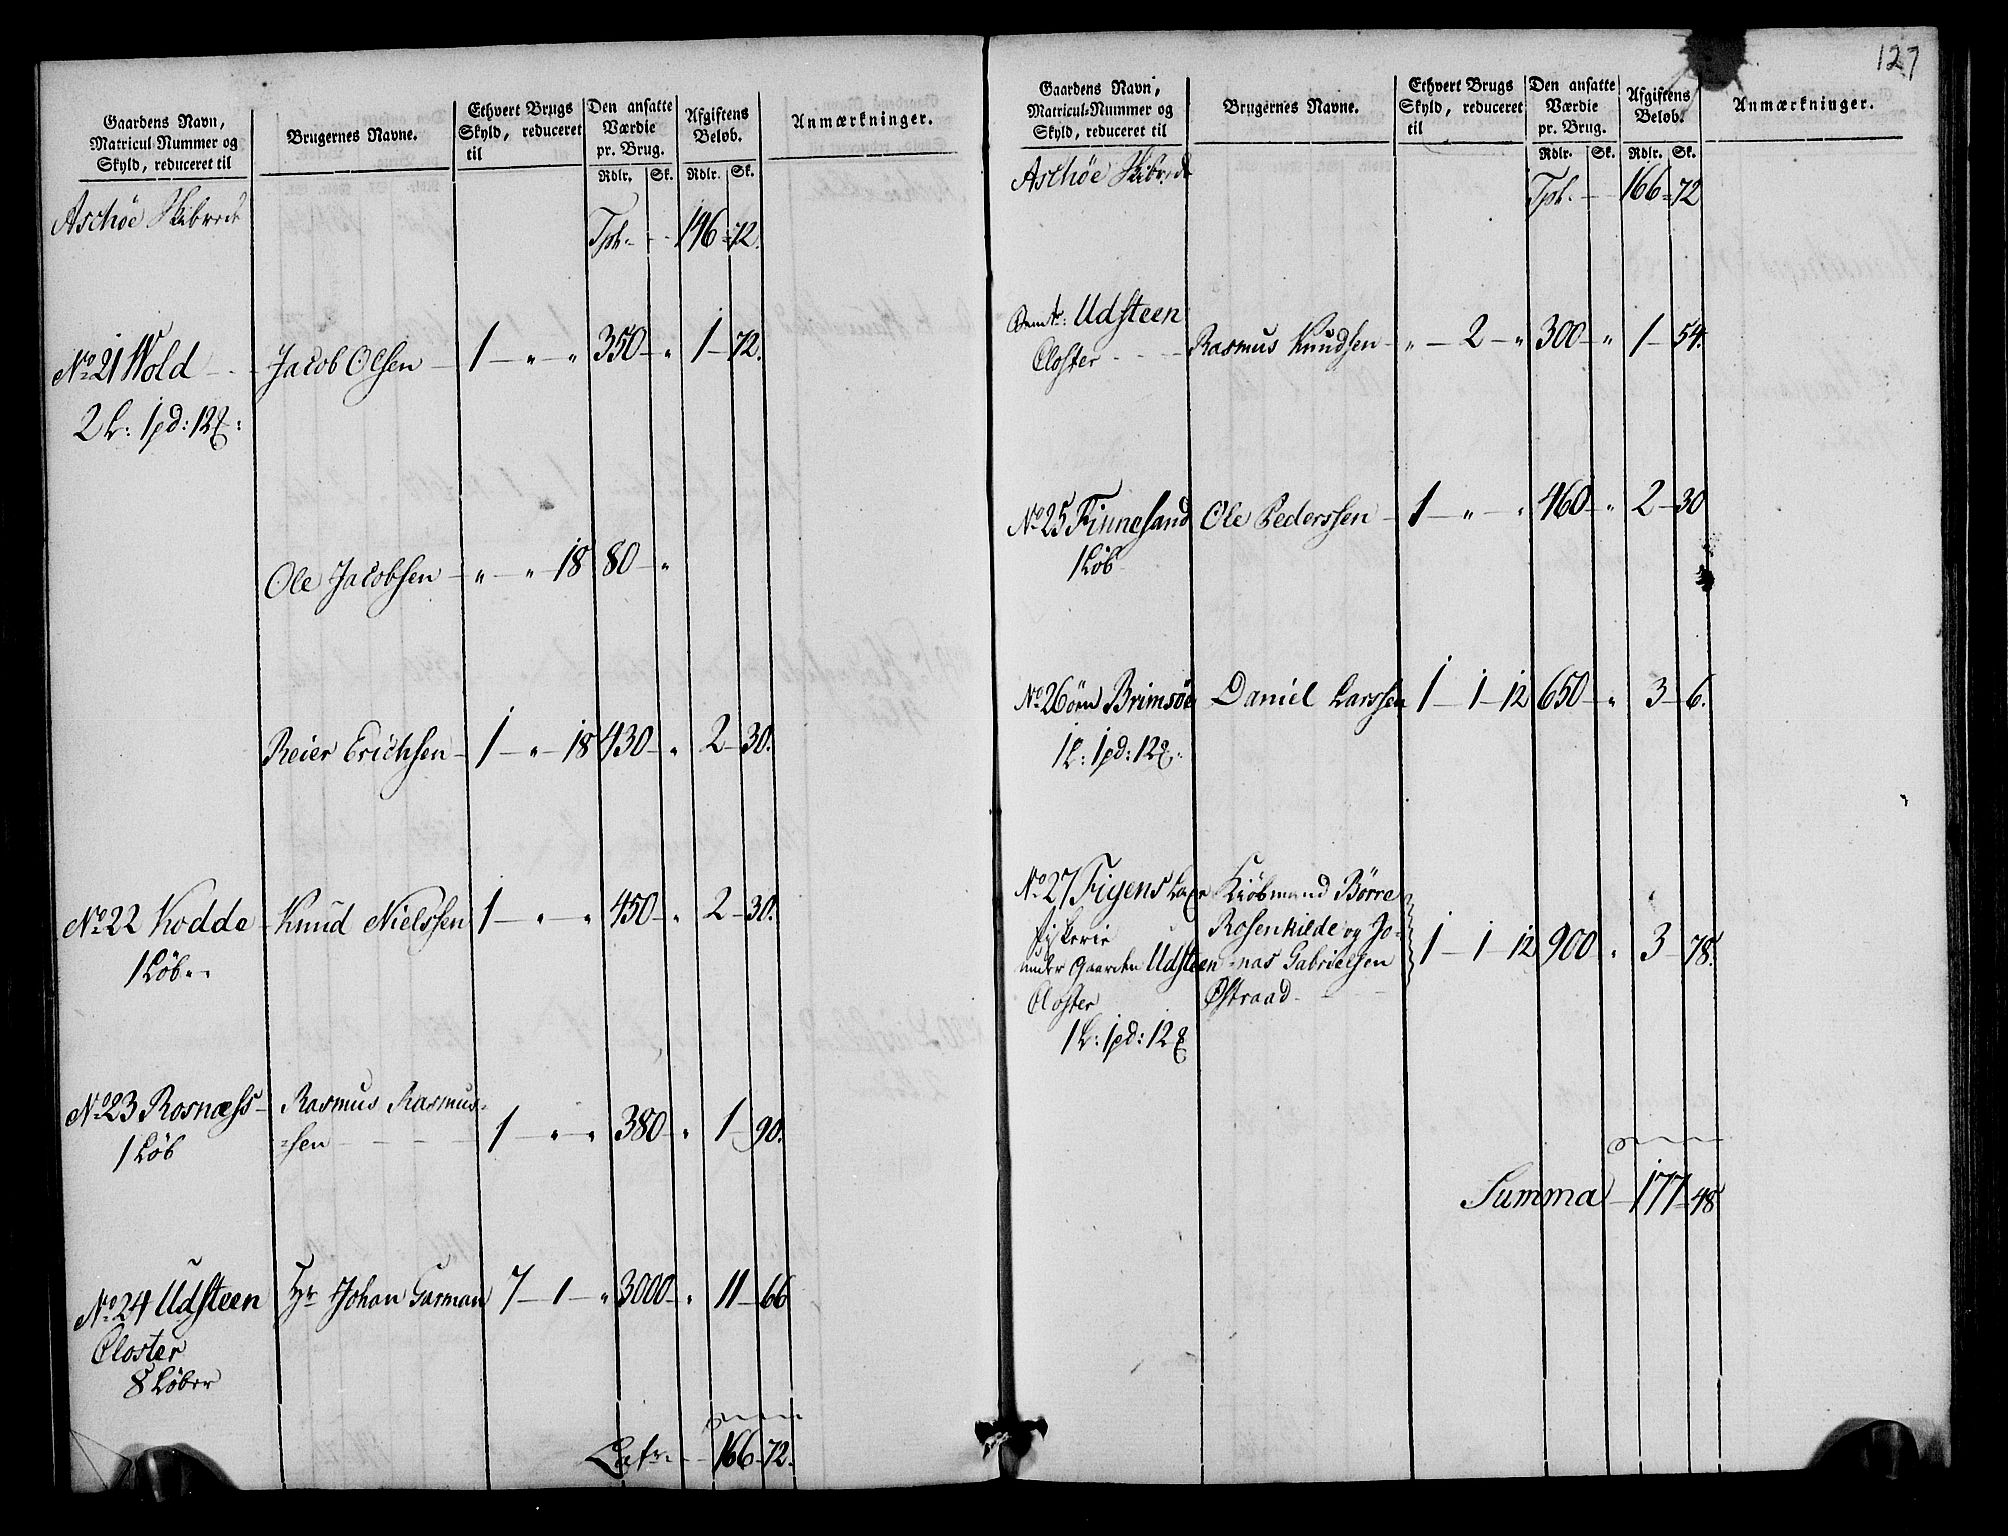 Gaardens Navn,
Matricul-Nummer og
Skyld, reduceret til
Brugernes Navne.
Ethvert Brugs
Skyld, reduceret
til
Den ansatte
Værdie
pr. Brug.
Rdlr. Sk.
Afgiftens
Beløb.
Rdlr. Sk.
Anmærkninger.
Aschøe Skibrede
Tpt. - - 146 - 72.
No 21 Wold - - Jacob Olsen - 1 - " - " 350 - " 1 - 72.
2 L: 1 pd: 12 :
Ole Jacobsen - " - " 18 80 - "
Reier Erichsen - 1 - " - 18 430 - " 2 - 30.
No 22 Kodde - Knud Nielssen 1 - " - " 450 - " 2 - 30.
1 Løb
No 23 Rosnæss - Rasmus Rasmus-
-sen - - - - 1 - " - " 380 - " 1 - 90.
1 Løb
No 24 Udsteen Hr Johan Garman 7 - 1 - " 3000 - " 11 - 66
Closter
8 Løber
Latr. - - 166 - 72.
127
Gaardens Navn,
Matricul-Nummer og
Skyld, reduceret til
Brugernes Navne.
Ethvert Brugs
Skyld, reduceret
til
Den ansatte
Værdie
pr. Brug.
Rdlr. Sk.
Afgiftens
Beløb.
Rdlr. Sk.
Anmærkninger.
Aschøe Skibrede
Tpt. - - 166 - 72
Udsteen
Closter - - - Rasmus Knudsen - " - 2 - " 300 - " 1 - 54.
No 25 Finnesand Ole Pederssen - 1 - " - " 460 - " 2 - 30
1 Løb
No 26 öen Brimsöe Daniel Larssen 1 - 1 - 12 650 - " 3 - 6.
1 L: 1 pd: 12
No 27 Figens Laxe Kiöbmand Börre
fiskerie Rosenkilde og Jo-
under Gaarden Udsteen -nas Gabrielsen 1 - 1 - 12 900 " 3 - 78.
Closter Østraad - - -
1 L: 1 pd: 12
Summa - 177 - 48